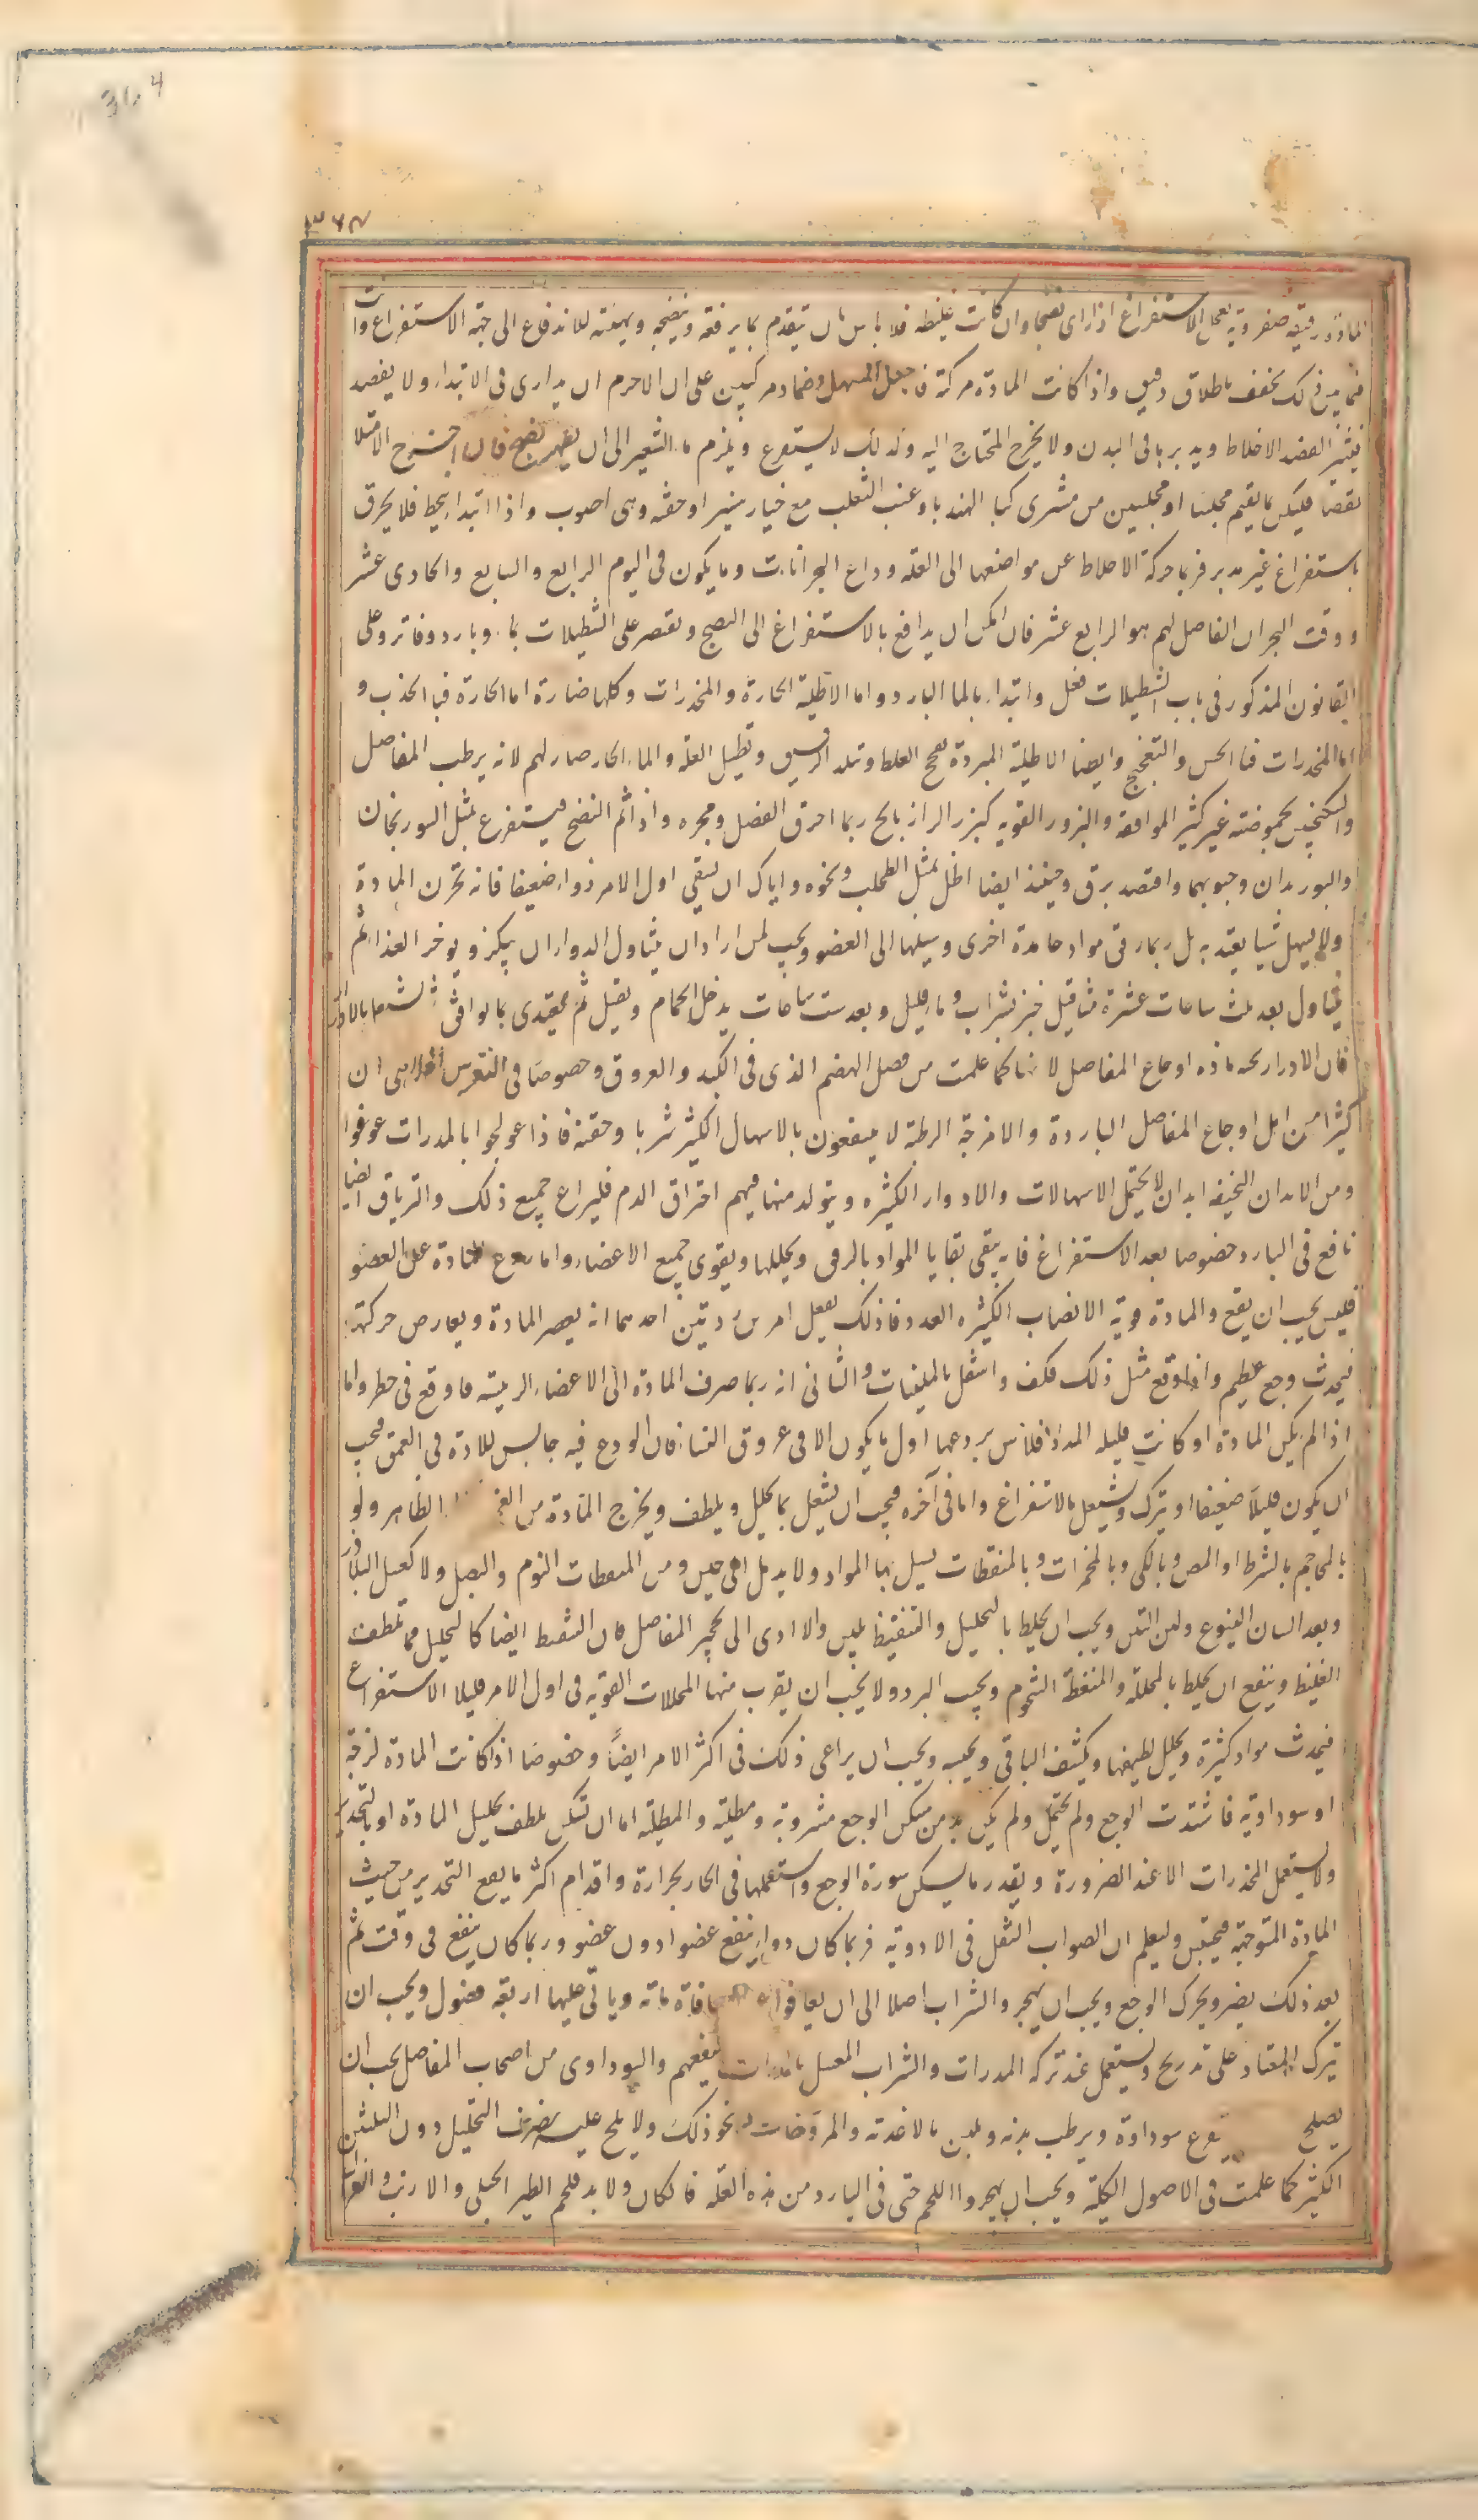 31.4
٣٦٨
المادة رقيقة صفروية نعجل الاستفراغ اذا راى نضجا وان كانت غليظه فلا باس بان يتقدم بما يرققه وينضجه ويهيئه للاندفاع الى جهة الاستفراغ وانت
فيما بين ذلك يخفف باطلاق دقيق واذا كانت المادة مركبة فاجعل المسهل وضماد مركبين على ان الاحزم ان يدارى فى الابتداء ولا يفصد
فيثير الفصد الاخلاط ويدبر باقى البدن ولا يخرج المحتاج اليه وكذلك لا يستفرغ ويلزم ماء الشعير الى ان يظهر نضج فان احترح الامتلا
نقصا فليكن بما يقيم مجلسا او مجلسين من مشرى كما الهندبا وعنب الثعلب مع خيار شنبر او حقنة وهى اصوب واذا ابتداء ينحط فلا يحرق
باستفراغ غير مدبر فربما حركة الاخلاط عن مواضعها الى العلة وراع البحرانات وما يكون فى اليوم الرابع والسابع والحادى عشر
ووقت البحران الفاصل لهم هو الرابع عشر فان امكن ان يدافع بالاستفراغ الى النضج وتقصر على النطيلات بماء وبارد وفاتر وعلى
القانون المذكور فى باب النطيلات فعل وابتداء بالما البارد واما الاطلية الحارة والمخدرات وكلها ضارة اما الحارة فبا الجذب و
اما المخدرات فبا الحس والتفجيج وايضا الاطلية المبردة تفجج الغلظ وتلد الرقيق وتطيل العلة والماء الحار ضار لهم لانه يرطب المفاصل
والسكنجبين بحموضته غير كثير الموافقة والبزور القويه كبزر الرازيانج ربما احرق الفضل وحجره واذا تم النضج فيستفرغ بمثل السورنجان
والبوزيدان وحبوبهما واقصد برق وحينئذ ايضا اطل بمثل الطحلب ونحوه واياك ان تسقى اول الامر دواء ضعيفا فانه تحرك المادة
ولا يسهل شيا يعتد به بل ربما رقق مواد جامدة اخرى وسيلها الى العضو ويجب لمن اراد ان يتناول الدواء ان يبكر ويوخر الغذا ثم
يتناول بعد ثلث ساعات عشرة مثاقيل خبز بشراب وماء قليل وبعد ست ساعات يدخل الحمام ويغتسل ثم يغتدى بما يوافق ثم يشتغل بالادرار
فان الادرار يحسم ماده اوجاع المفاصل لانها كما علمت من فصل الهضم الذى فى الكبد والعروق وخصوصا فى النقرس ان
كثيرا من اهل اوجاع المفاصل الباردة والامزجة الرطبة لا ينتفعون بالاسهال الكثير شربا وحقنة فاذا عولجوا بالمدرات عوفوا
ومن الابدان النحيفة ابدان لا يحتمل الاسهالات والادوار الكثيره ويتولد منها فيهم احتراق الدم فليراع جميع ذلك والترياق ايضا
نافع فى البارد خصوصا بعد الاستفراغ فانه ينقى بقايا المواد بالرفق ويحللها ويقوى جميع الاعضاء واما ردع المادة عن العضو
فليس يجب ان يقع والمادة قوية الانصباب الكثيره العدد فاذ ذلك يفعل امرين رديين احدهما انه يعصر المادة ويعارض حركتها
فيحدث وجع عظيم واذا وقع مثل ذلك فكف واشغل بالملينات والثانى انه ربما صرف المادة الى الاعضاء الرئيسة فاوقع فى خطر واما
اذا لم تكن المادة او كانت قليله المدد فلا باس بردعها اول ما يكون الا فى عروق النساء فان الردع فيه حابس للمادة فى العمق فيجب
ان يكون قليلا ضعيفا او يترك ويشتغل بالاستفراغ واما فى آخره فيجب ان يشتغل بما يحلل ويلطف ويخرج المادة من الظاهر ولو
بالمحاجم بالشرط او المص وبالكى وبالمحمرات وبالمنفطات يسيل بها المواد ولا يدمل الى حين ومن المنفطات الثوم والبصل ولا كعسل البلاذر
وبعد البان اليتوع ولبن التين ويجب ان يخلط بالتحليل والتنفيط تليين والا ادى الى تحجير المفاصل فان التنفيط ايضا كالتحليل مما تلطف
الغليظ وينفع ان يخلط بالمحللة والمنفطة الشحوم ويجيب البرد ولا يجب ان يقرب منها المحللات القويه فى اول الامر قبل الاستفراغ
فيحدث مواد كثيرة ويحلل لطيفها ويكثف الباقى ويحبسه ويجب ان يراعى ذلك فى اكثر الامر ايضًا وخصوصا اذا كانت المادة لزجة
او سوداوية فاشتدت الوجع ولم يحتمل ولم يكن بد من مسكن الوجع مشروبة ومطلية والمطلية اما ان تسكن بلطف تحليل المادة او بالتخدير
ولا يستعمل المخدرات الا عند الضرورة وبقدر ما يسكن سورة الوجع واستعملها فى الحار بحرارة واقدام اكثر ما يقع التخدير من حيث
المادة المتوجهة فيحتبس وليعلم ان الصواب النقل فى الادوية فربما كان دواء ينفع عضوا دون عضو وربما كان ينفع فى وقت ثم
بعد ذلك يضر ويحرك الوجع ويجب ان يهجروا الشراب اصلا الى ان يعافوا معافاة تامة وياتى عليها اربعة فصول ويجب ان
يترك المعتاد على تدريج ويستعمل عند تركه المدرات والشراب المعسل بالمدرات ينفعهم والسوداوى من اصحاب المفاصل يجب ان
يصلح سوداوة ويرطب بدنه ويلين بالاغذية والمروخات ونحو ذلك ولا يلح عليه بصرف التحليل دون التليين
الكثير كما علمت فى الاصول الكلية ويجب ان يهجروا اللحم حتى فى البارد من هذه العلة فان كان ولا بد فلحم الطير الجبلى والارنب والغزال